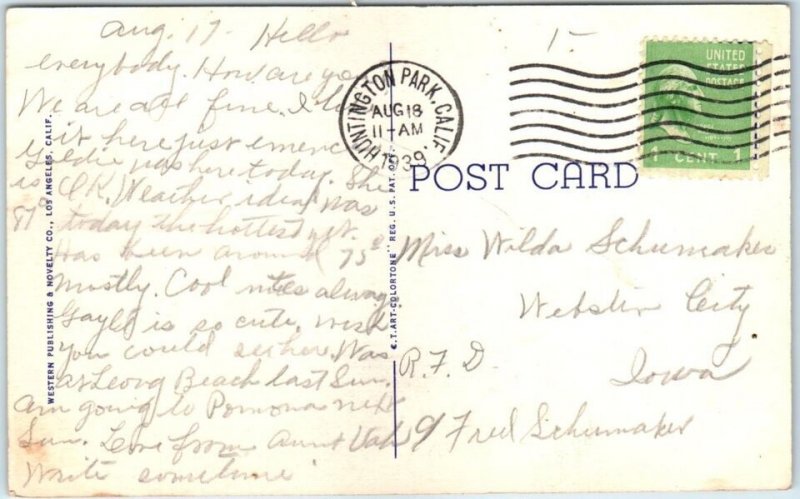 Aug. 17 - Hello
everybody. How are you
We are all fine. I like
it here just
Goldie was here today. She
is O.K. Weather ideal was
87° today the hottest yet.
Has been around 75°
mostly. Cool nites always
Gayle is so cute. Wish
you could see her. Was
at Long Beach last Sun.
Am going to Pomona next
Sun. Love from Aunt
Write sometime
WESTERN PUBLISHING & NOVELTY CO., LOS ANGELES, CALIF.
"C.T. ART-COLORTONE" REG. U.S. PAT. OFF.
HUNTINGTON PARK, CALIF.
AUG 18
11-AM
1939
1-
UNITED
STATES
POSTAGE
1 CENT 1
POST CARD
Miss Wilda Schumaker
Webster City
R.F.D. Iowa
c/ Fred Schumaker